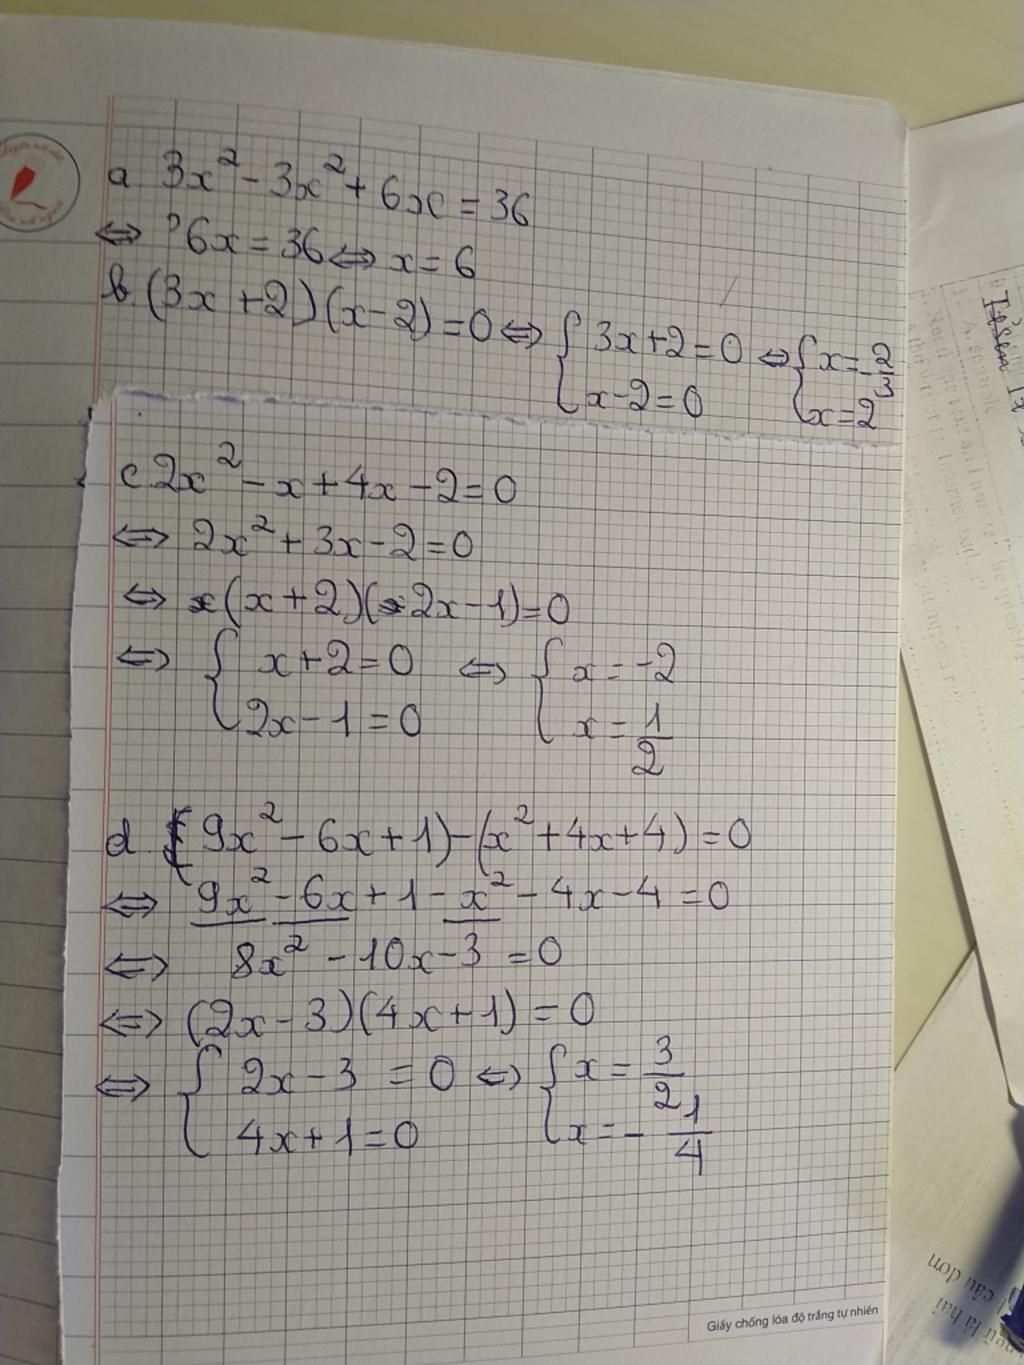 a 3x² - 3x² + 6x = 36
⇔ 6x = 36 ⇔ x = 6
b (3x + 2)(x - 2) = 0 ⇔ { 3x + 2 = 0 ⇔ { x = -2/3
x - 2 = 0 x = 2
c 2x² - x + 4x - 2 = 0
⇔ 2x² + 3x - 2 = 0
⇔ (x + 2)(2x - 1) = 0
⇔ { x + 2 = 0 ⇔ { x = -2
2x - 1 = 0 x = 1/2
d (9x² - 6x + 1) - (x² + 4x + 4) = 0
⇔ 9x² - 6x + 1 - x² - 4x - 4 = 0
⇔ 8x² - 10x - 3 = 0
⇔ (2x - 3)(4x + 1) = 0
⇔ { 2x - 3 = 0 ⇔ { x = 3/2
4x + 1 = 0 x = - 1/4
Giấy chống lóa độ trắng tự nhiên
câu đơn